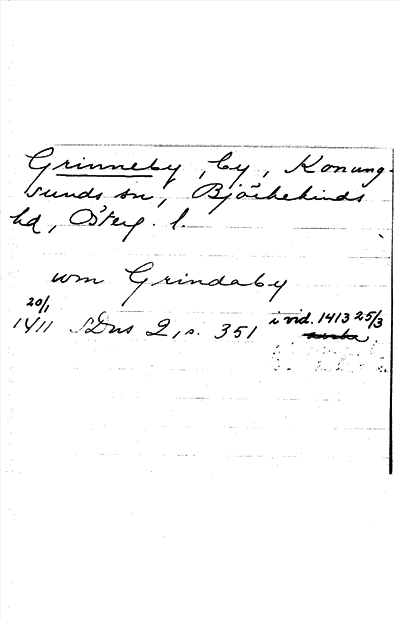 Grinneby, by, Konung-
sunds sn, Björkekinds
hd, Österg. l.
um Grindaby
20/1
1411 SDns 2, s. 351 i vid. 1413 25/3